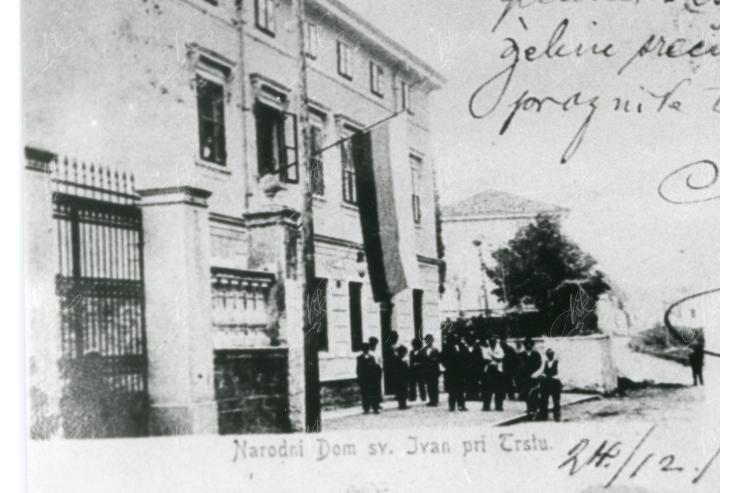 želim sreč
praznike
Narodni Dom sv. Ivan pri Trstu.
24./12./